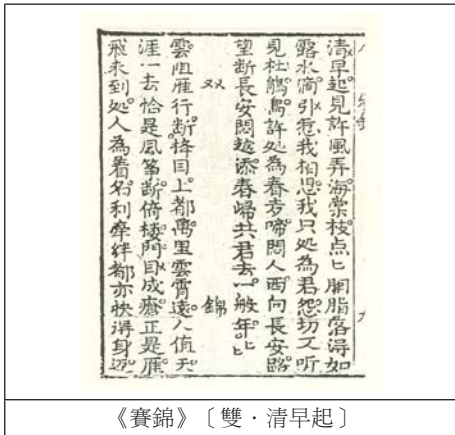 清早起見許風弄海棠枝点匕胭脂落得如
露水滴引惹我相思我只处為君怨切又听
見杜鵑鳥許处為春去啼悶人西向長安路
望斷長安悶越添春歸共君去一般年匕
又 錦
雲阻雁行斷擡目上都萬里雲霄遠人值天
涯一去恰是風箏斷倚楼門目成瘡正是雁
飛未到处人為着名利牽絆都亦袂得身返
《賽錦》〔雙．清早起〕